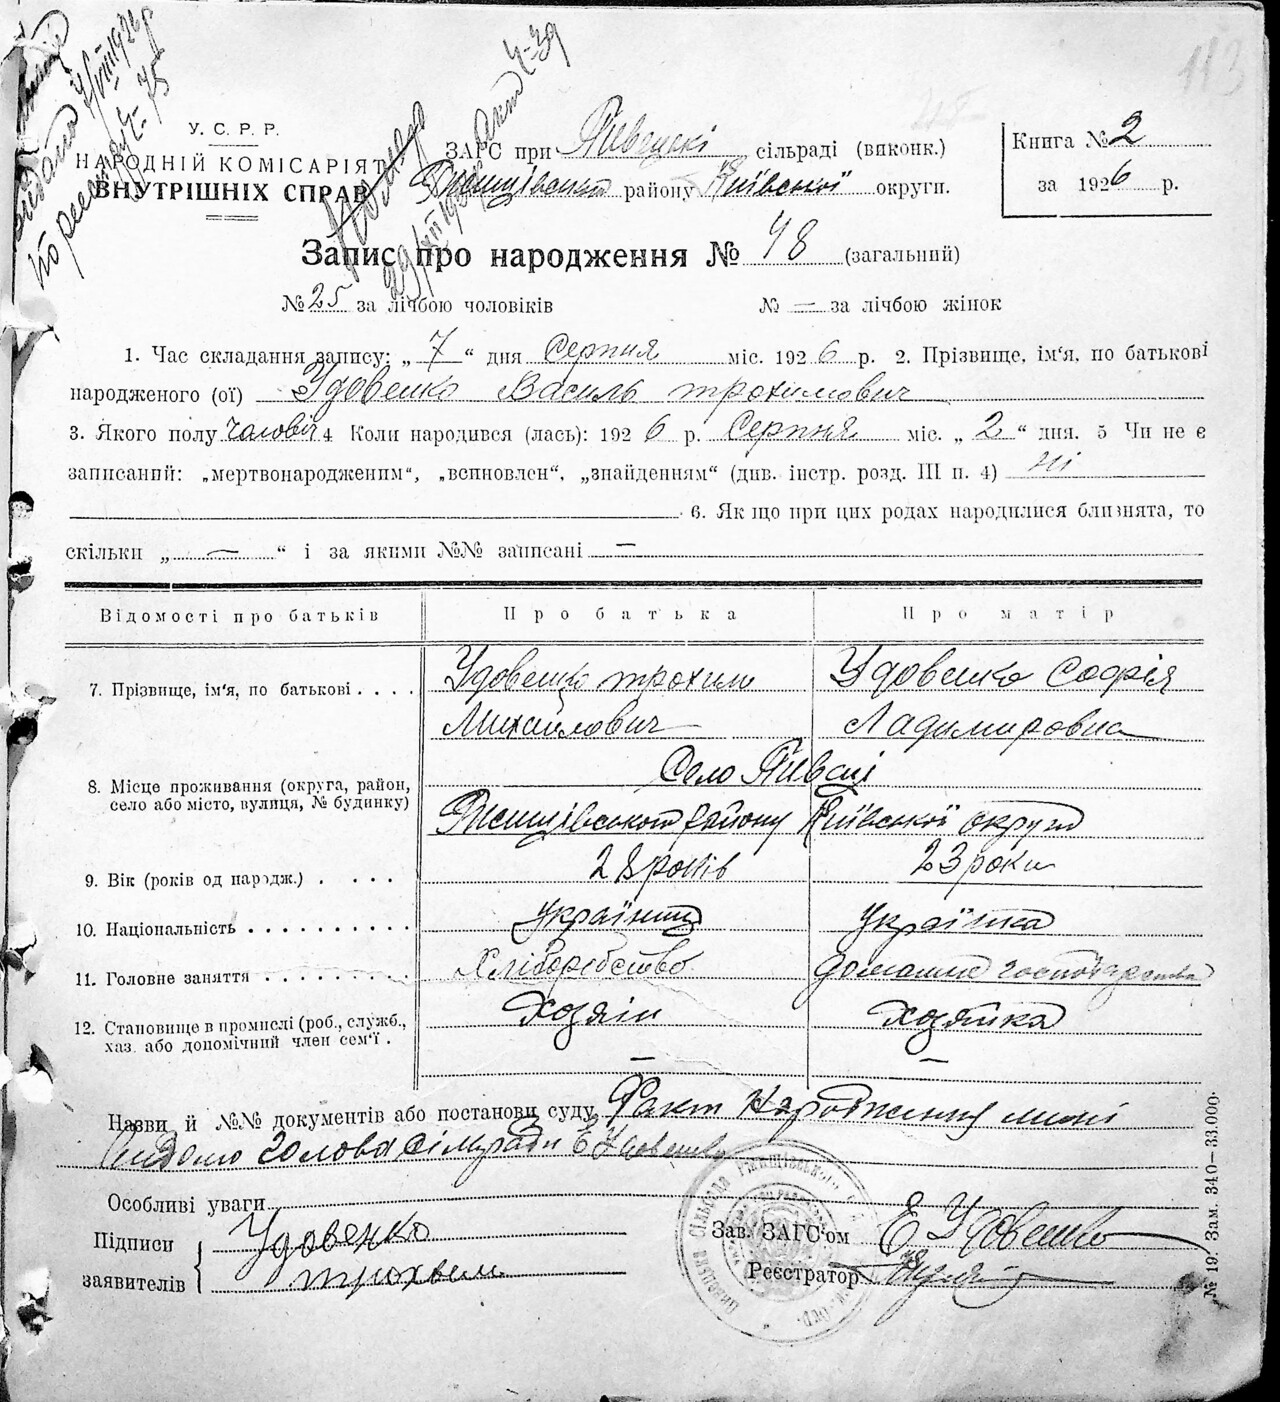 113
видана 7/VIII 1926 р
по реєстру Ч-75
29/VIII 1926 акт Ч-39
У. С. Р. Р.
НАРОДНІЙ КОМІСАРІЯТ
ВНУТРІШНІХ СПРАВ
ЗАГС при Пивецькі сільраді (виконк.)
Ржищівськ району Київської округи.
Книга № 2
за 1926 р.
Запис про народження № 48 (загальний)
№ 25 за лічбою чоловіків № — за лічбою жінок
1. Час складання запису: „ 7 “ дня Серпня міс. 1926 р. 2. Прізвище, ім'я, по батькові
народженого (ої) Удовенко Василь Трохимович
3. Якого полу чоловіч 4 Коли народився (лась): 1926 р. Серпня міс. „ 2 “ дня. 5 Чи не є
записаний: „мертвонародженим“, „вспновлен“, „знайденням“ (див. інстр. розд. III п. 4) ні
6. Як що при цих родах народилися близнята, то
скільки „ — “ і за якими №№ записані —
Відомості про батьків Про батька Про матір
7. Прізвище, ім'я, по батькові . . . . Удовенко Трохим Михайлович Удовенко Софія Ладимировна
8. Місце проживання (округа, район, село або місто, вулиця, № будинку) Село Пивці
Ржищівського району Київської округи
9. Вік (років од народж.) . . . . 28 років 23 роки
10. Національність . . . . . . . . . . Українец Українка
11. Головне заняття . . . . . . . . Хліборобство домашнє господарства
12. Становище в промислі (роб., служб., хаз. або допомічний член сем'ї . Хозяін Хозяйка
— —
Назви й №№ документів або постанови суду Факт Народження мині
видомо Голова сільради Є Удовенко
Особливі уваги
Підписи заявителів { Удовенко
Трохвим
Зав. ЗАГС'ом Є Удовенко
Реєстратор
№ 19. Зам. 340—33.000.